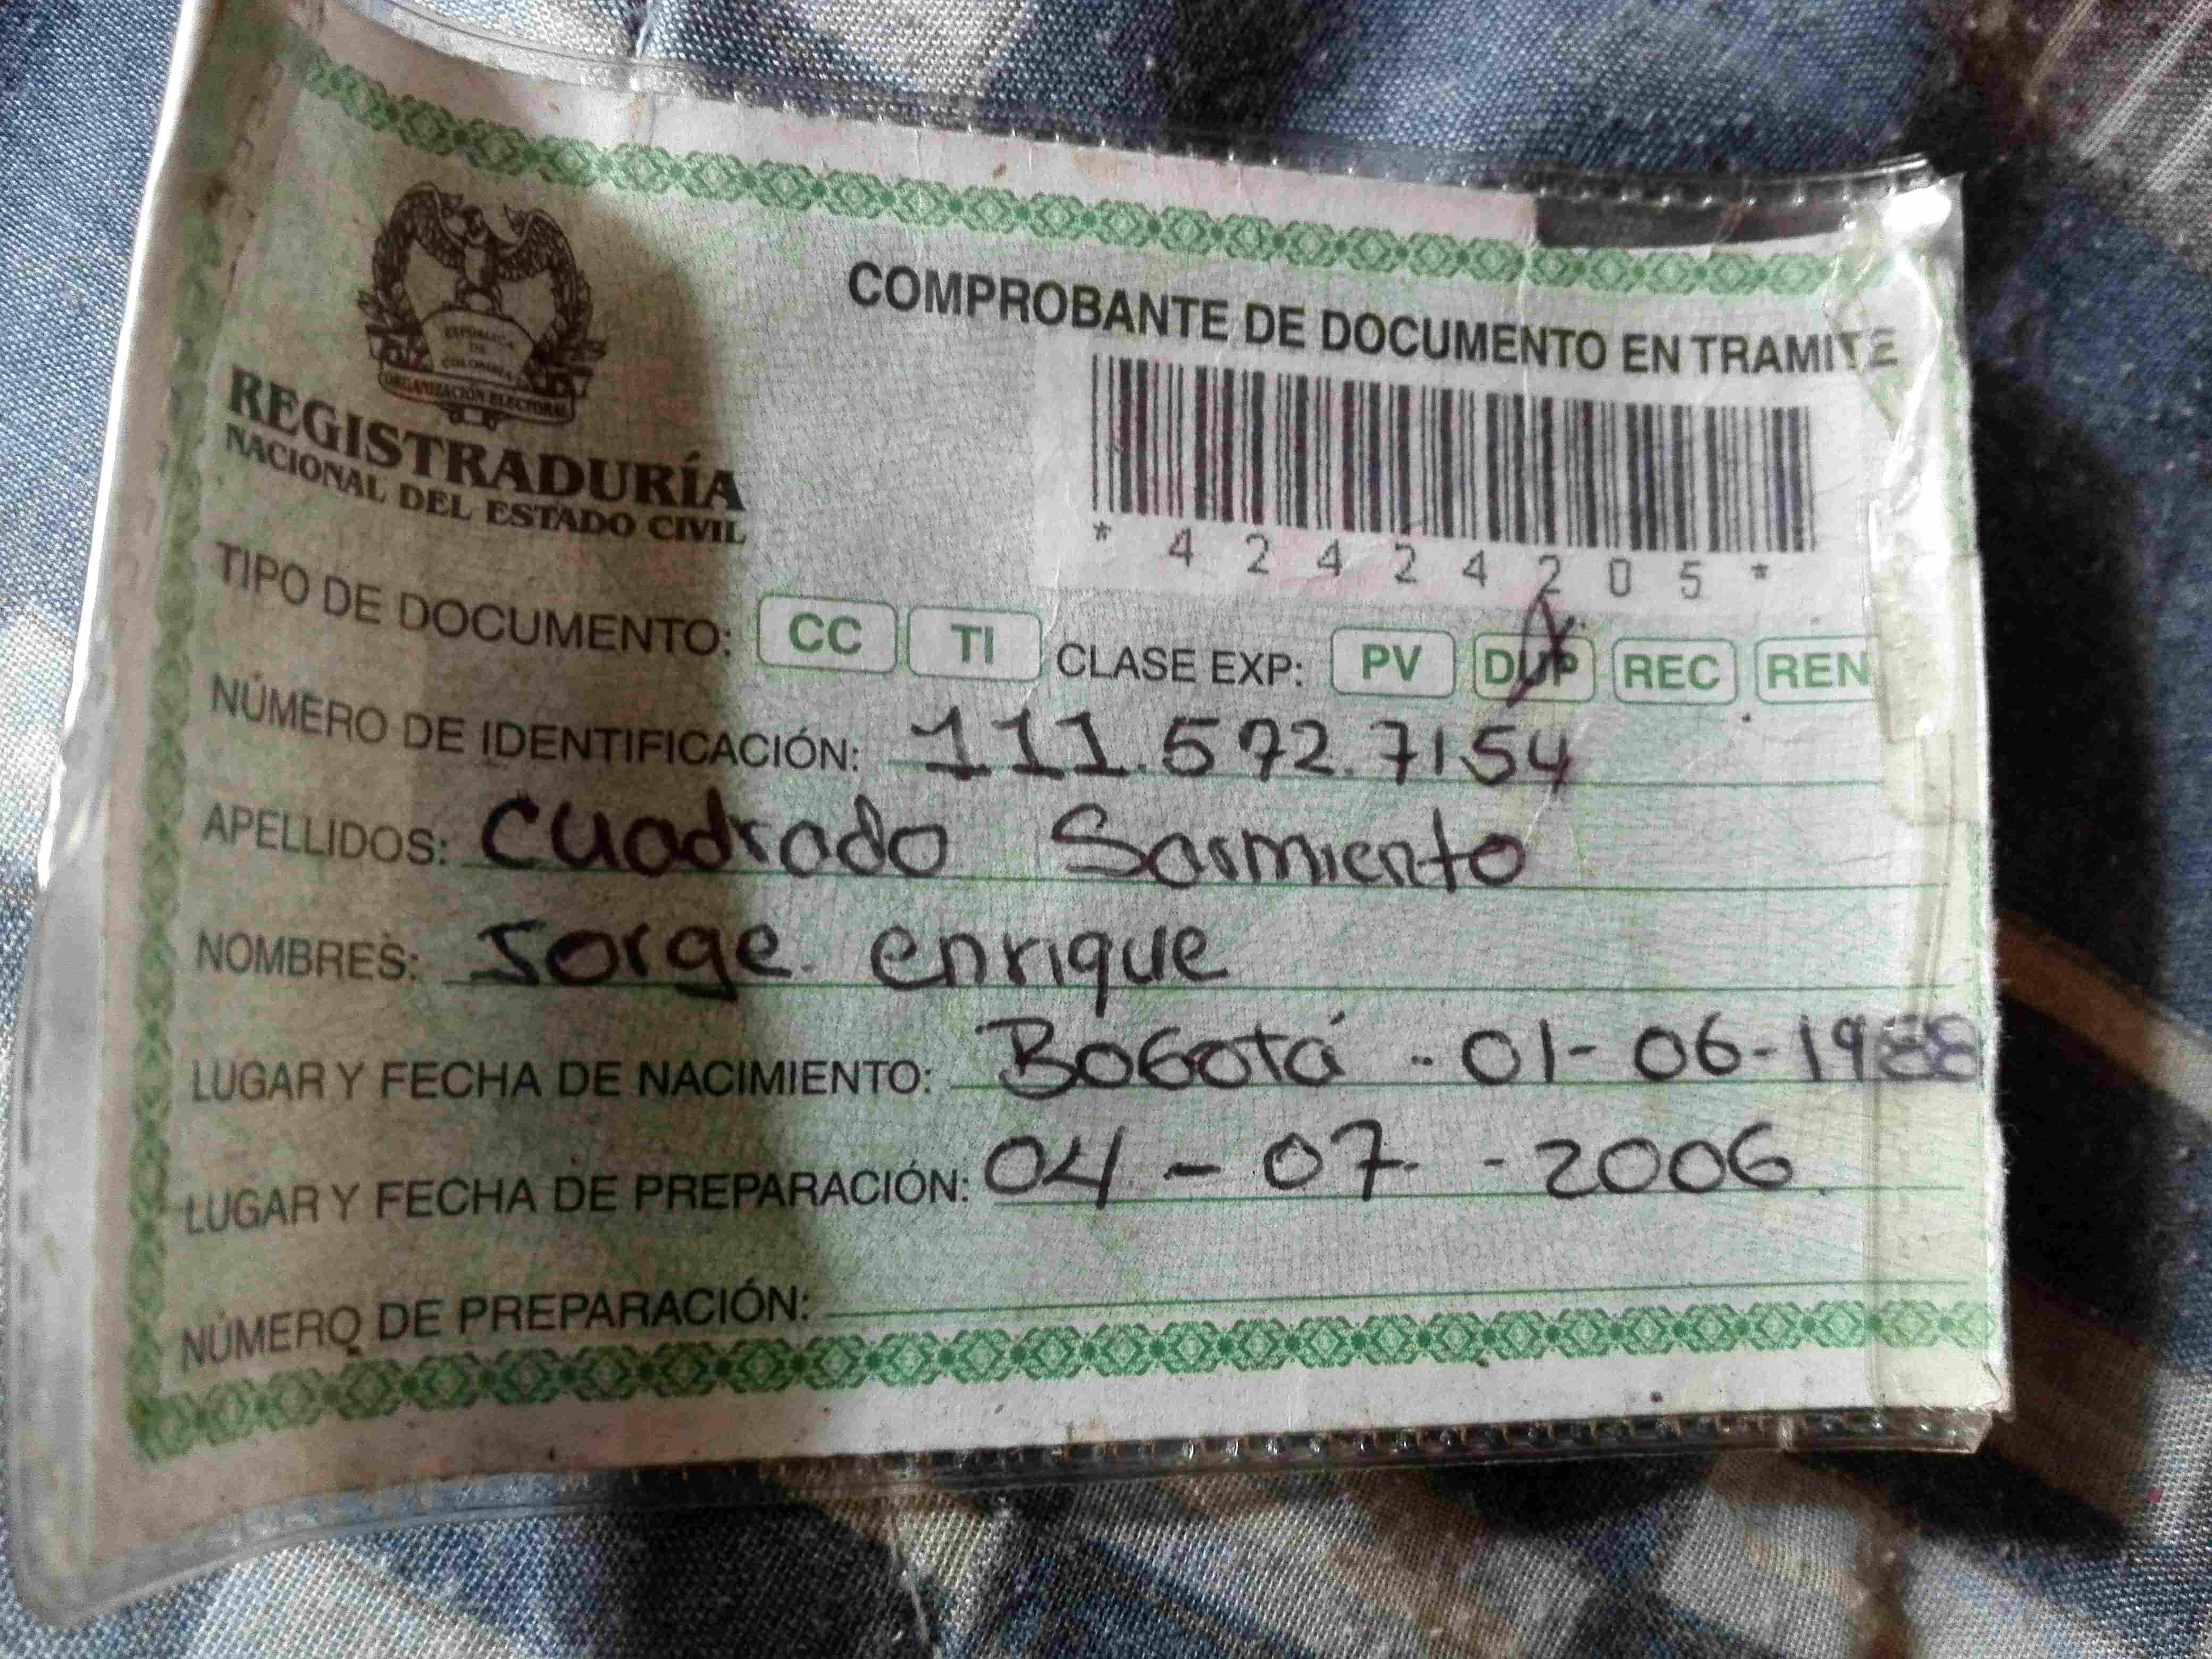 COMPROBANTE DE DOCUMENTO EN TRAMITE
REPUBLICA
DE
COLOMBIA
ORGANIZACIÓN ELECTORAL
REGISTRADURÍA
NACIONAL DEL ESTADO CIVIL
* 4 2 4 2 4 2 0 5 *
TIPO DE DOCUMENTO: CC TI CLASE EXP: PV DUP REC REN
NÚMERO DE IDENTIFICACIÓN: 111.572.7154
APELLIDOS: Cuadrado Sarmiento
NOMBRES: Jorge enrique
LUGAR Y FECHA DE NACIMIENTO: Bogotá - 01-06-1988
LUGAR Y FECHA DE PREPARACIÓN: 04-07-2006
NÚMERO DE PREPARACIÓN: